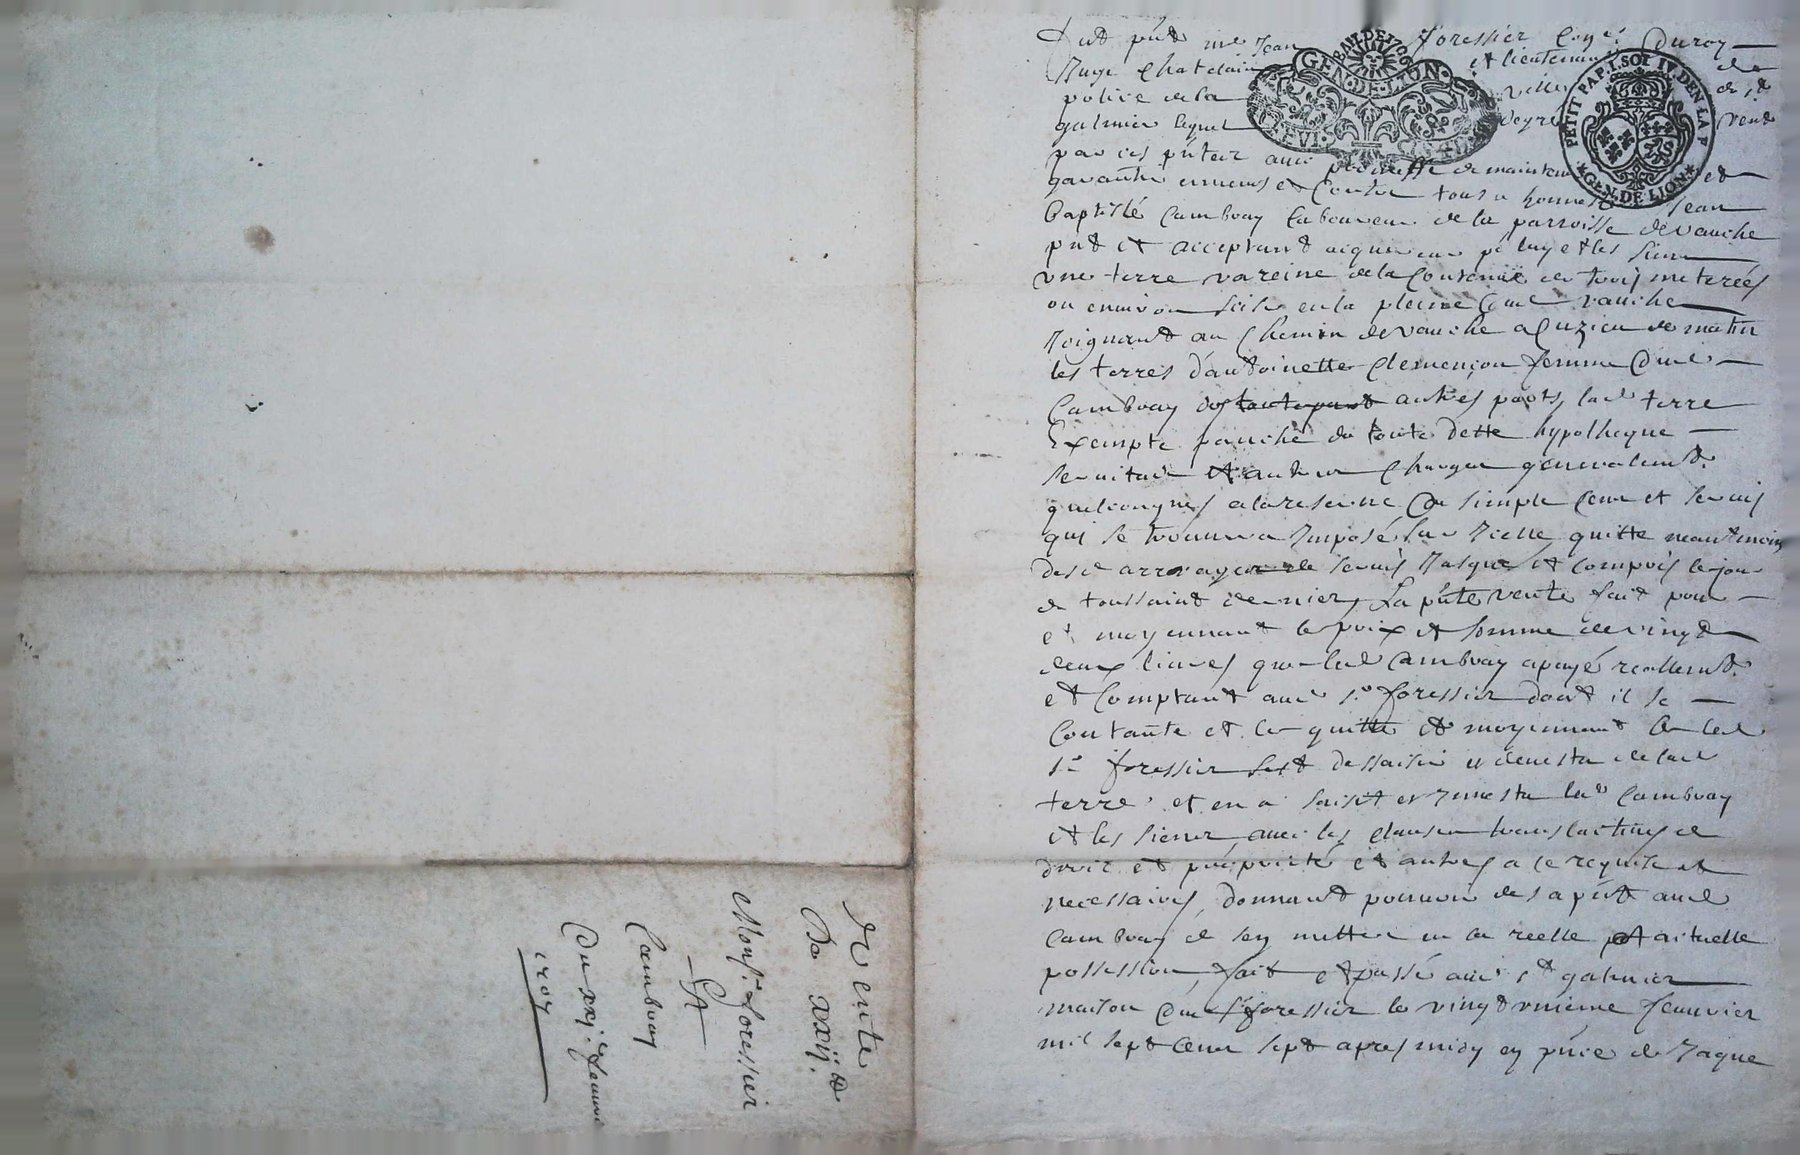 fut pnt me Jean foressier conr duroy
Juge Chatelain et lieutenant de
police de la ville de st
galmier lequel vend
BAU.DE 1706
GEN·DE·LION·
PETIT PAP. 1. SOL IV. DEN LA F
GEN. DE LION
par ces pntes avec promesse de maintenir et
garantir envers et Contre tous a honneste Jean
baptiste Cambray laboureur de la parroisse de vauche
pnt et acceptant acquereur pr luy et les siens
une terre vareine de la Contenue de trois meterées
ou environ size en la pleine dud vauche
Joignant au Chemin de vauche a Cuzieu de matin
les terres d'antoinette Clemençon femme dud
Cambray des autres parts, lad terre
Exempte franche de toute dette hypotheque
servitude et autres Charges generalemt
quelconques a la reserve du simple Cens et servis
qui se trouvera Imposé sur Icelle quitte neantmoins
desd arrerages de servis Jusques et Compris le jour
de toussaint dernier, La pnte vente fait pour
et moyennant le prix et somme de vingt
deux livres que led Cambray a payé reellemt
et Comptant aud sr foressier dont il se
Contante et le quitte et moyennant Ce led
sr foressier sest dessaisi et devestu de lad
terre et en a saisit et Investu led Cambray
et les siens avec les clauses translatives de
droit et proprieté et autres a ce requises et
necessaires, donnant pouvoir des a pnt aud
Cambray de sen mettre en la reelle et actuelle
possession, fait et passé aud st galmier
maison dud sr foressier le vingt unieme Janvier
mil sept Cens sept apres midy en pnce de Jaque
Vente
De xxii lt
Monsr foressier
A
Cambray
Du xxje Janvr
1707